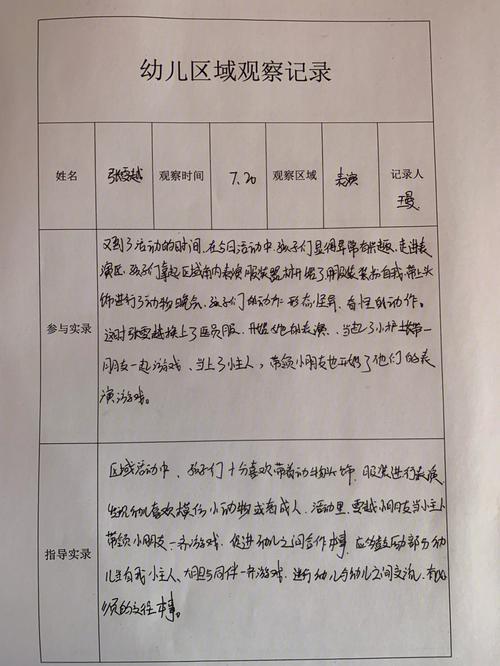 幼儿区域观察记录
姓名 张雯越 观察时间 7.20 观察区域 表演 记录人 王曼
参与实录
又到了活动的时间,在今日活动中,孩子们显得异常有兴趣,走进表
演区,孩子们拿起区域内表演服装器材开始了用服装装扮自我,带上头
饰进行了动物晚会,孩子们的动作形态怪异,奇怪的动作。
这时张雯越换上了医员服,开始了她的表演,当起了小护士带一
朋友一起游戏,当上了小主人,带领小朋友也开始了他们的表
演游戏。
指导实录
区域活动中,孩子们十分喜欢带着动物头饰,服装进行表演
幼儿喜欢模仿小动物或者成人,活动里,雯越小朋友当小主人
带领小朋友一齐游戏,促进幼儿之间合作本事,应鼓励部分幼
儿当小主人、大胆与同伴一齐游戏,进行幼儿与幼儿之间交流,
的交往本事。